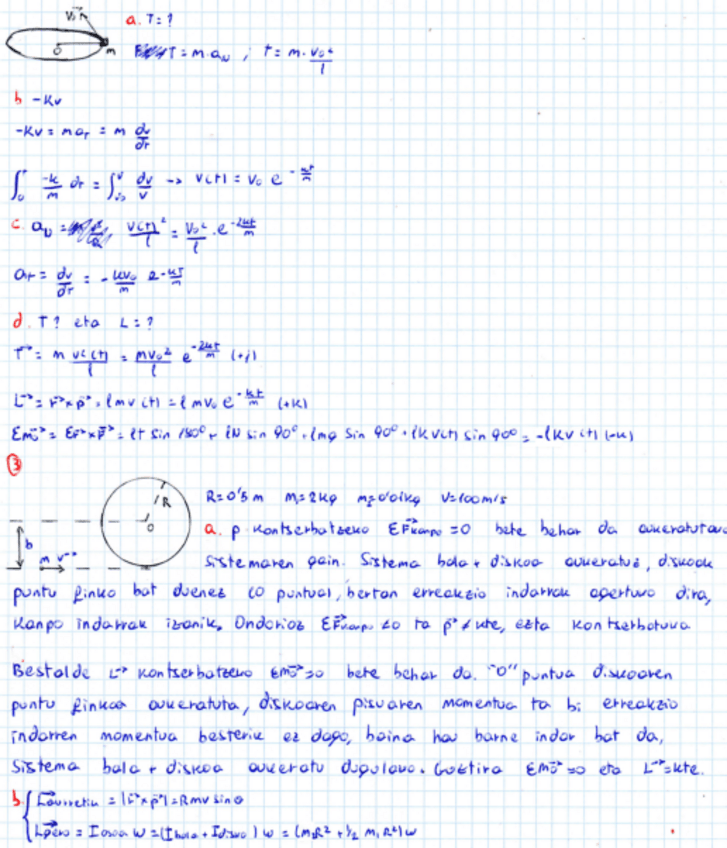 a. T = ?
T = m · a_N ; t = m · v₀²/l
b -Kv
-Kv = m a_T = m dv/dt
∫₀ᵗ -k/m dt = ∫_{v₀}^{v} dv/v → v(t) = v₀ e^{-kt/m}
c. a_N = v(t)²/l = v₀²/l · e^{-2kt/m}
a_T = dv/dt = - kv₀/m e^{-kt/m}
d. T? eta L = ?
T→ = m v²(t)/l = mv₀²/l e^{-2kt/m} (+j)
L→ = r→ × p→ = l m v(t) = l m v₀ e^{-kt/m} (+k)
ΣM₀→ = Σr→ × F→ = lT sin 180° + lN sin 90° + lmg sin 90° + lKv(t) sin 90° = -lKv(t) (-k)
3
R = 0'5 m M = 2kg m = 0'01kg V = 100m/s
a. p kontserbatzeko ΣF→kanpo = 0 bete behar da aukeratutako
sistemaren gain. Sistema bala + diskoa aukeratuz, diskoak
puntu finko bat duenez (O puntua), bertan erreakzio indarrak agertuko dira,
kanpo indarrak izanik. Ondorioz ΣF→kanpo ≠ 0 ta p→ ≠ kte, ezta kontserbatuko
Bestalde L→ kontserbatzeko ΣM₀→ = 0 bete behar da. "O" puntua diskoaren
puntu finkoa aukeratuta, diskoaren pisuaren momentua ta bi erreakzio
indarren momentua besterik ez dago, baina hau barne indar bat da,
sistema bala + diskoa aukeratu dugulako. Guztira ΣM₀→ = 0 eta L→ = kte.
b. L→aurretik = |r→ × p→| = Rmv sinθ
L→gero = Iosoa w = (Ibala + Idisko) w = (m₂R² + 1/2 m₁R²) w
b
m v→
R
O
V₀→
O
m